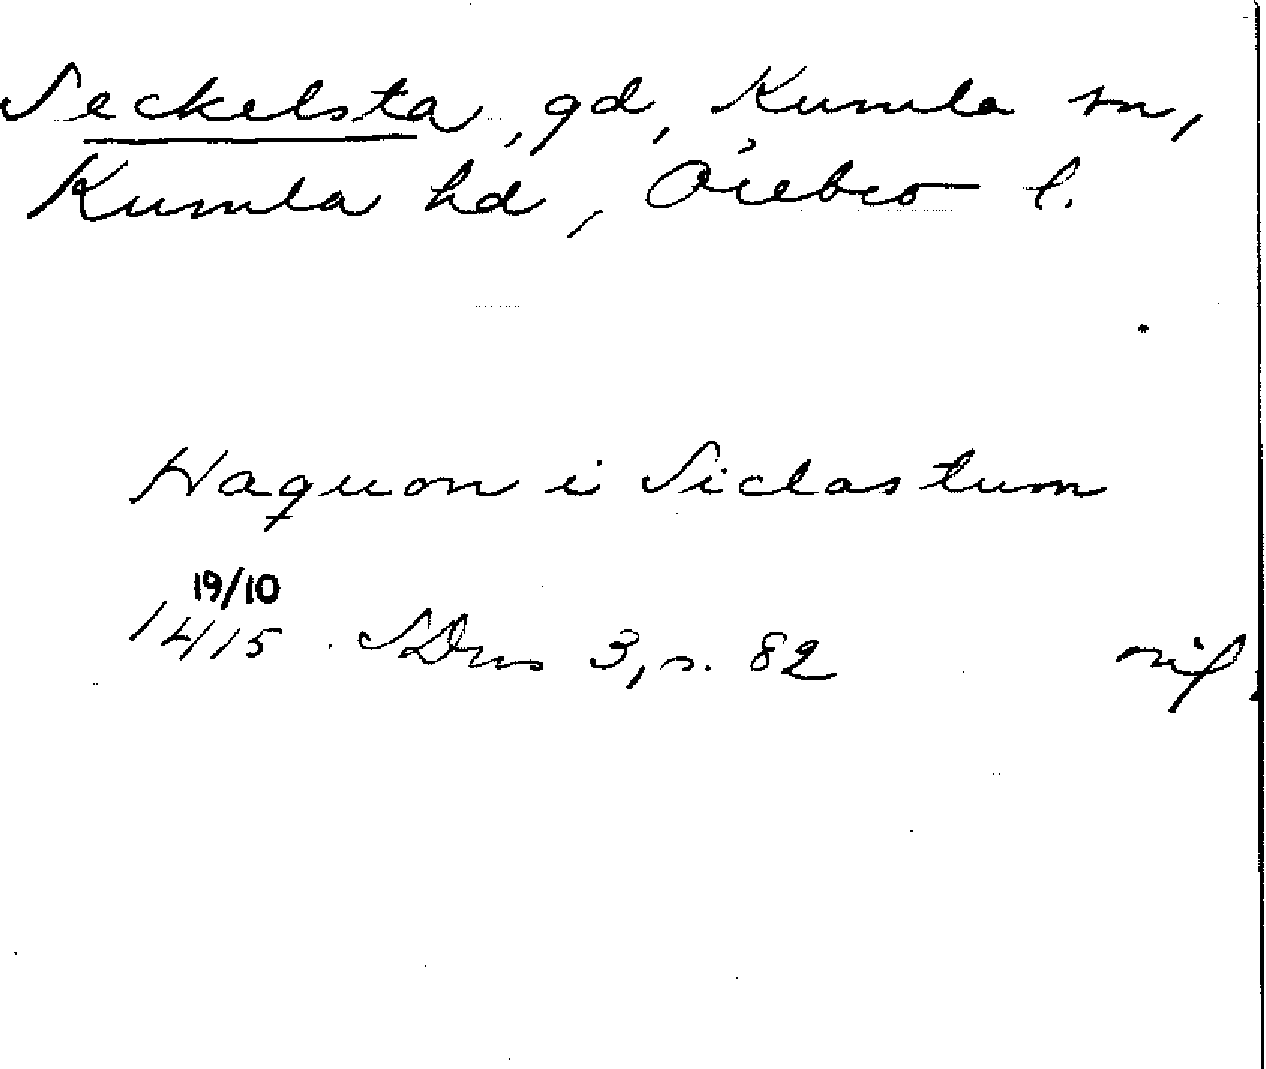 Seckelsta, gd, Kumla sn,
Kumla hd, Örebro l.
Haquon i Siclastum
19/10
1415 SDns 3, s. 82